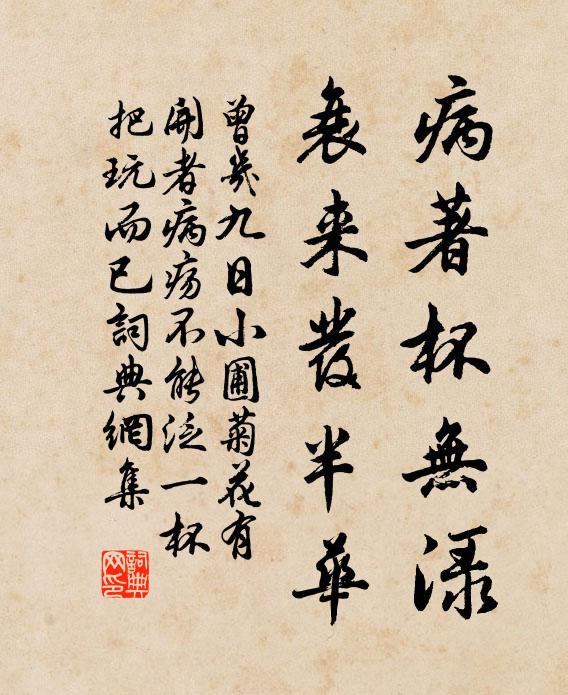 病著杯無渌
衰来發半華
曾幾九日小圃菊花有
開者病瘍不能泛一杯
把玩而已詞典網集
詞典网印